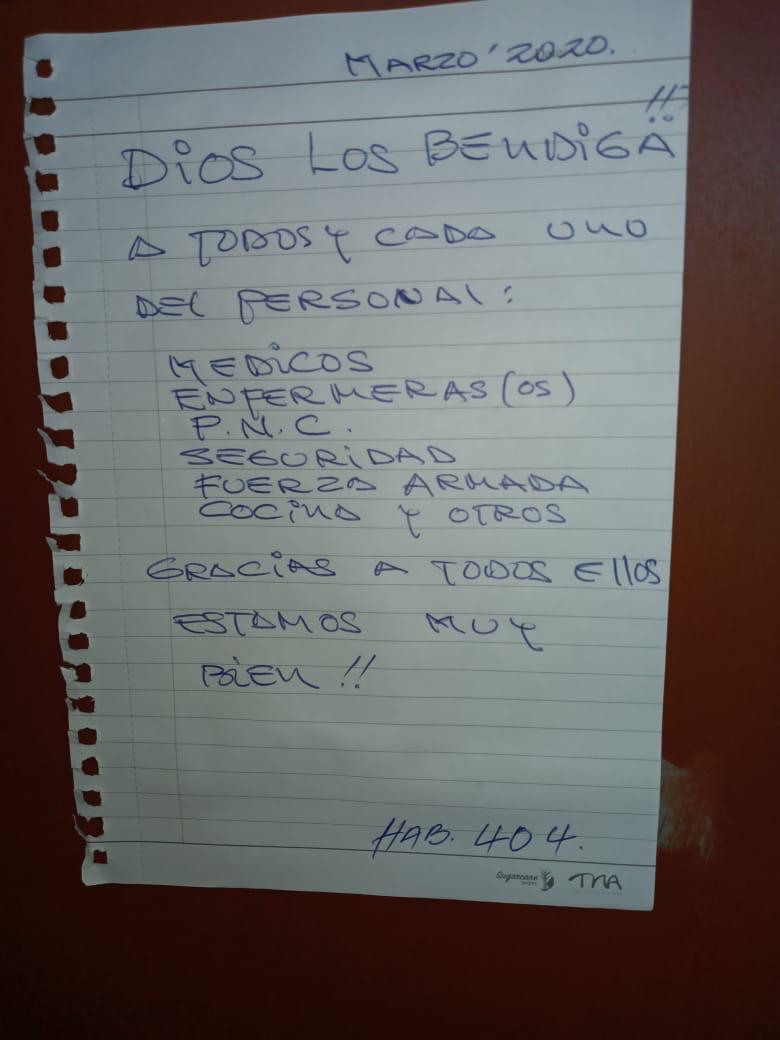 MARZO '2020.
DiOS LOS BENDiGA!!
A TODOS Y CADA UNO
DEL PERSONAL:
MEDiCOS
ENFERMERAS (OS)
P.N.C.
SEGURiDAD
FUERZA ARMADA
COCiNA Y OTROS
GRACiAS A TODOS EllOS
ESTAMOS MUY
BiEN!!
HAB. 404.
Sugarcane paper TNA